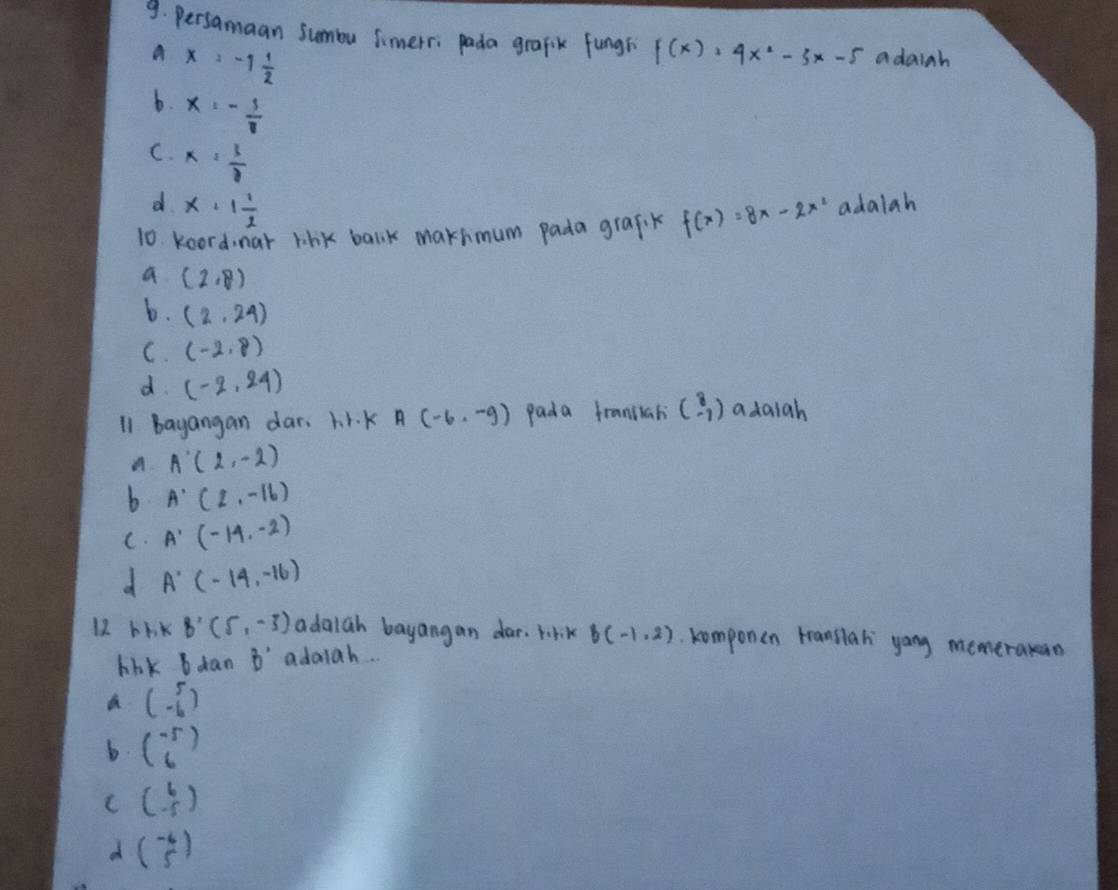 9. Persamaan sumbu simetri pada grafik fungsi f(x) = 4x² - 3x - 5 adalah
a x = -1 1/2
b. x = - 3/8
c. x = 3/8
d. x = 1 1/2
10. koordinat titik balik maksimum pada grafik f(x) = 8x - 2x² adalah
a. (2,8)
b. (2,24)
c. (-2,8)
d. (-2,24)
11 Bayangan dari titik A (-6,-9) pada translasi (8 -7) adalah
a. A'(2,-2)
b. A'(2,-16)
c. A'(-14,-2)
d A'(-14,-16)
12 titik B'(5,-3) adalah bayangan dari titik B(-1,2). komponen translasi yang memetakan
titik B dan B' adalah...
a. (5 -6)
b. (-5 6)
c (6 -5)
d (-6 5)